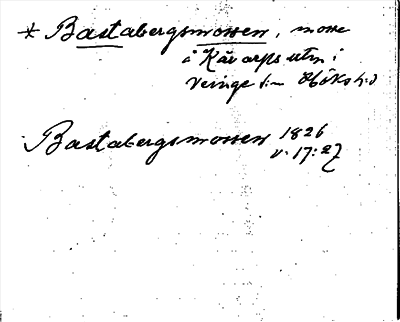 * Bastabergsmossen, mosse
å Kärarps utm i
Veinge sn Höks hd
Bastabergsmossen 1826
v. 17:27